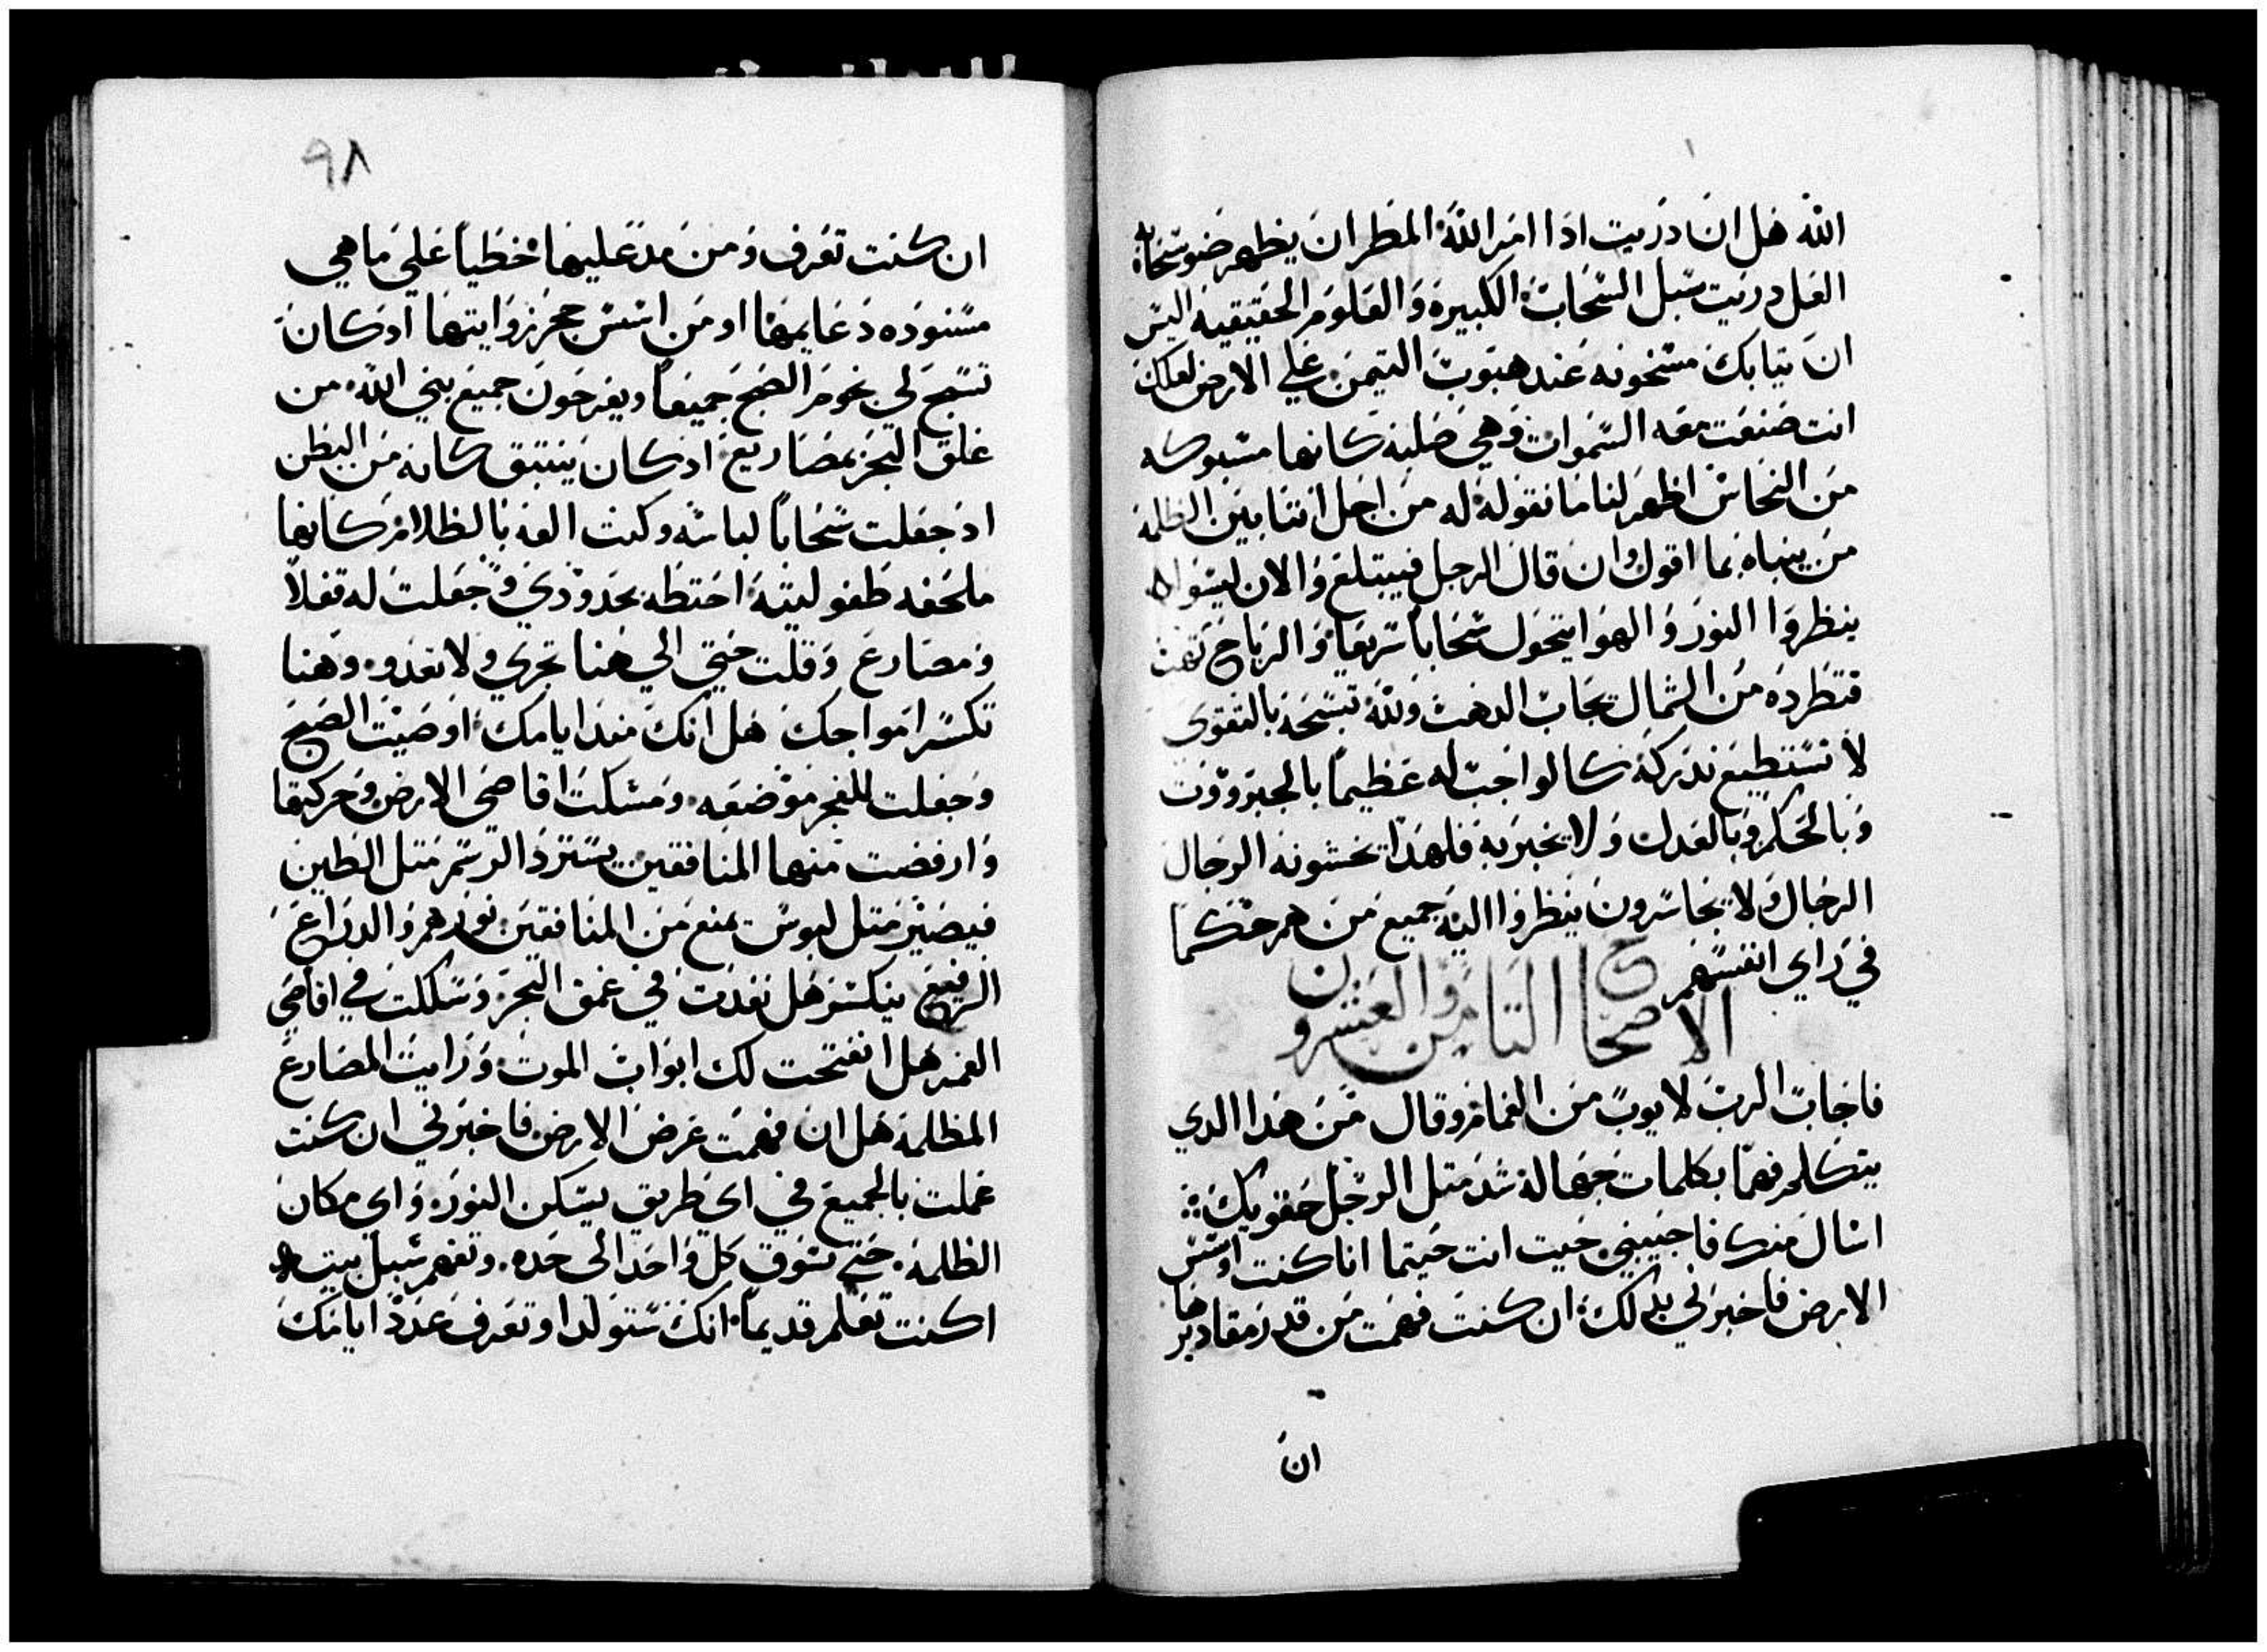 الله هل ان دريت اذا امر الله المطر ان يظهر ضو سحابه
العل دريت سبل السحاب الكبيرة والعلوم الحقيقية اليس
ان تيابك مسخونه عند هبوب التيمن علي الارض لعلك
انت صنعت معه السموات وهي صلبة كانها مسبوكه
من النحاس اظهر لنا ما نقوله له من اجل اننا بين الظلمة
من ينباه بما اقول وان قال الرجل فيبتلع والان ليسوا
ينظروا النور والهوا يتحول سحاباً سريعاً والرياح تهب
فتطرده من الشمال سحاب الدهب ولله تسبحه بالتقوى
لا نستطيع ندركه كالواجب له عظيماً بالجبروت
وبالحكم وبالعدل ولا يخبر به فلهذا تخشونه الرجال
الرجال ولا يتجاسرون ينظروا اليه جميع من هم حكما
في راي انفسهم
الاصحاح التامن والعشرون
فاجاب الرب لايوب من الغمام وقال من هذا الدي
يتكلم فهما بكلمات جهالة شد متل الرجل حقويك
اسال منك فاجيبني حيت انت حيتما انا كنت اوسس
الارض فاخبرني بدلك ان كنت فهمت من قدر مقاديرها
ان
٩٨
ان كنت تعرف ومن مد عليها خطياً علي ما هي
مسنوده دعايمها او من اسس حجر زوايتها اذ كان
تسبح لي نجوم الصبح جميعاً ويفرحون جميع بني الله من
غلق البحر بمصاريع اذ كان ينبتق كانه من البطن
اذ جعلت سحاباً لباسه وكنت الفه بالظلام كانها
ملحفه طفوليته احتطه بحدودي وجعلت له قفلاً
ومصارع وقلت حتي الي هنا تجري ولا تعدو وهنا
تكسر امواجك هل انك مند ايامك اوصيت الصبح
وجعلت للفجر موضعه ومسكت اقاصي الارض وحركتها
وارفضت منها المنافقين يسترد الرسم متل الطين
فيصير متل لبوس يمنع من المنافقين نورهم والدراع
الرفيع ينكسر هل نفدت في عمق البحر وسلكت في اقاصي
الغمر هل انفتحت لك ابواب الموت ورايت المصارع
المظلمة هل ان فهمت عرض الارض فاخبرني ان كنت
عملت بالجميع في اي طريق يسكن النور واي مكان
الظلمة حتي تسوق كل واحد الى حده وتفهم سبل بيته
اكنت تعلم قديماً انك ستولد او تعرف عدد ايامك